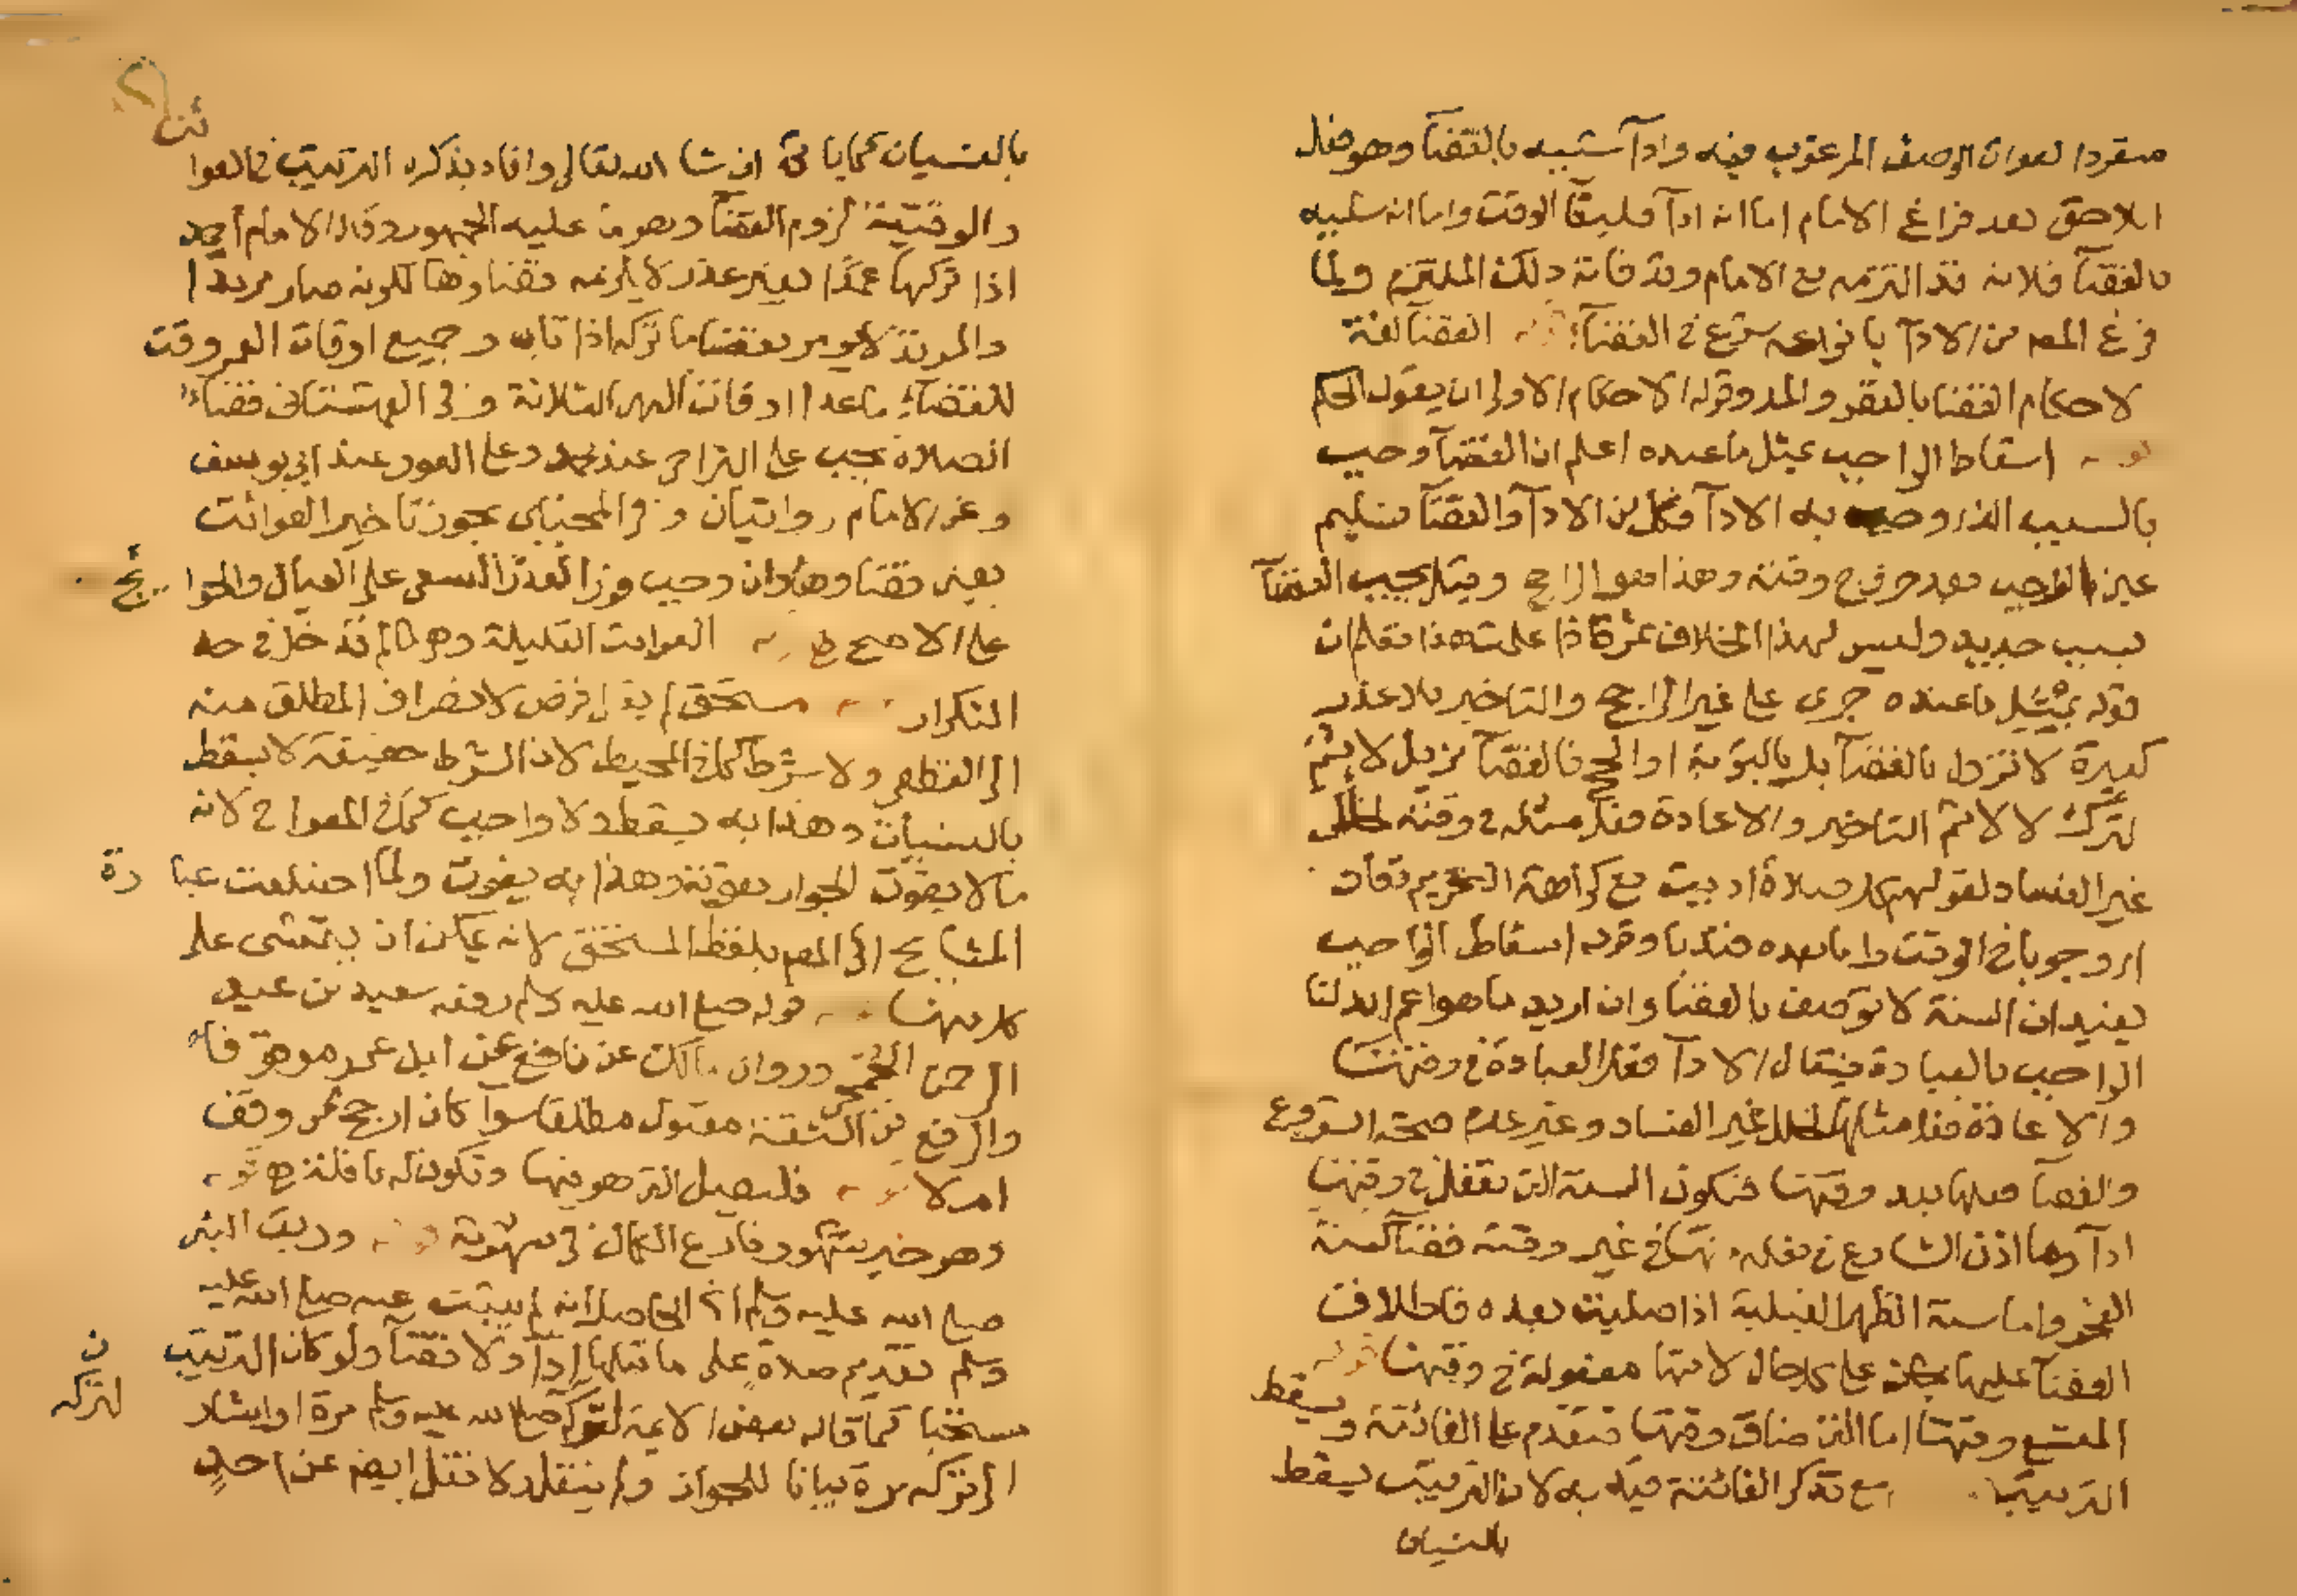 منفردا لفوات الوصف المرغوب فيه واداآ شبيه بالقضآ وهو فعل
اللاحق بعد فراغ الامام اما انه اداآ فلبقآ الوقت واما انه شبيه
بالقضآ فلانه قد التزمه مع الامام وقد فاته ذلك الملتزم ولما
فرغ المص من الادآ بانواعه شرع في القضآ قوله القضآ لغة
لاحكام القضا بالقصر والمد وقوله الاحكام الاولى ان يقول الحكم
قوله اسقاط الواجب بمثل ما عنده اعلم ان القضآ وجب
بالسبب الذي وجب به الادآ فكل من الادآ والقضآ تسليم
عين الواجب بعد خروج وقته وهذا هو الراجح وقيل يجب القضآ
بسبب جديد وليس لهذا الخلاف ثمرة اذا علمت هذا تعلم ان
قوله بمثل ما عنده جرى على غير الراجح والتاخير بلا عذر
كبيرة لا تزول بالقضآ بل بالتوبة او الحج فالقضآ مزيل لاثم
الترك لا لاثم التاخير والاعادة فعل مثله في وقته لخلل
غير الفساد لقولهم كل صلاة اديت مع كراهة التحريم تعاد
اي وجوبا في الوقت واما بعده فندبا وقوله اسقاط الواجب
يفيد ان السنة لا توصف بالقضآ وان اريد ما هو اعم ابدلنا
الواجب بالعبادة فيقال الادآ فعل العبادة في وقتها
والاعادة فعل مثلها لخلل غير الفساد وغير عدم صحة الشروع
والقضآ فعلها بعد وقتها فتكون السنة التي تفعل في وقتها
ادآ وما اذن الشارع في فعله منها في غير وقته قضآ كسنة
الفجر واما سنة الظهر القبلية اذا صليت بعده فاطلاق
القضآ عليها على كل حال لانها مفعولة في وقتها قوله
المتسع وقتها اما التي ضاق وقتها فتقدم على الفائتة ويسقط
الترتيب مع تذكر الفائتة قيد به لان الترتيب يسقط
بالنسيان
بالنسيان كما ياتي ان شا الله تعالى وافاد بذكره الترتيب في الفوائت
والوقتية لزوم القضآ وهو ما عليه الجمهور وقال الامام احمد
اذا تركها عمدا بغير عذر لا يلزمه قضاوها لكونه صار مرتدا
والمرتد لا يومر بقضا ما تركه اذا تاب وجميع اوقات العمر وقت
للقضآ ما عدا اوقات النهي الثلاثة وفي القهستاني قضاء
الصلاة يجب على التراخي عند محمد وعلى الفور عند ابي يوسف
وعن الامام روايتان وفي المجتبى يجوز تاخير الفوائت
يعني قضاوها وان وجب فورا لعذر السعي على العيال والحوايج
على الاصح قوله الفوايت القليلة وهو ما لم تدخل في حد
التكرار قوله مستحق لم يقل فرض لانصراف المطلق منه
الى القطعي ولا شرط كما في المحيط لان الشرط حقيقة لا يسقط
بالنسيان وهذا به يسقط ولا واجب كما في المعراج لانه
ما لا يفوت الجواز بفوته وهذا به يفوت ولما اختلفت عبارة
المشايخ اتى المص بلفظ المستحق لانه يمكن ان يتمشى على
كل منها قوله قوله صلى الله عليه وسلم رفعه سعيد بن عبد
الرحمن الجمحي ورواه مالك عن نافع عن ابن عمر موقوفا
والرفع من الثقة مقبول مطلقا سوآ كان ارجح ممن وقف
ام لا قوله فليصل التي هو فيها وتكون له نافلة قوله
وهو خبر مشهور ونازع الكمال في شهرته قوله ورتب النبي
صلى الله عليه وسلم الخ الحاصل انه لم يثبت عنه صلى الله عليه
وسلم تقديم صلاة على ما قبلها ادآ ولا قضآ ولو كان الترتيب
مستحبا كما قاله بعض الايمة لتركه صلى الله عليه وسلم مرة او اشار
الى تركه مرة بيانا للجواز ولم ينقل ولا نقل ايضا عن احد